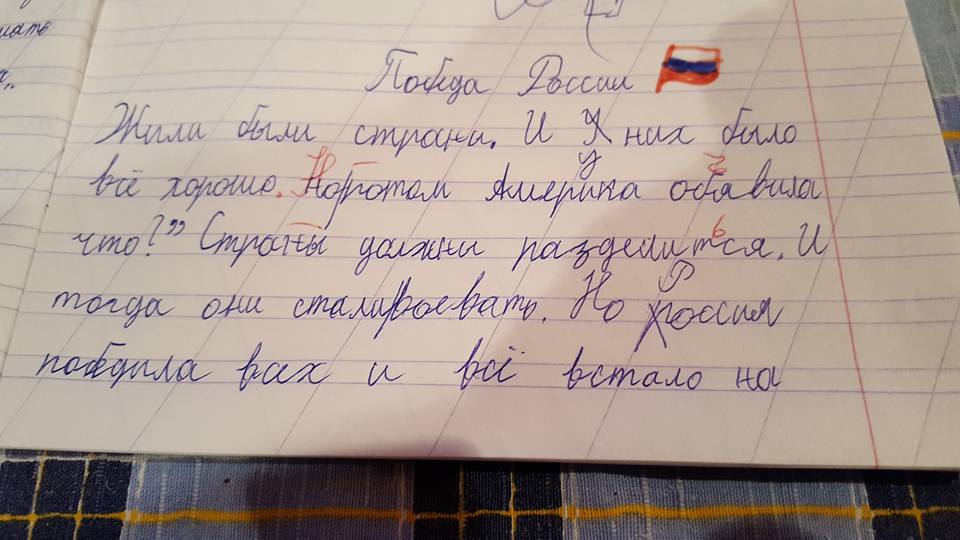 Победа России
Жили были страни. И у них было
всё хорошо. Но потом Америка обьявила
что?” Страны должни разделиться. И
тогда они стали воевать. Но Россия
победила всех и всё встало на